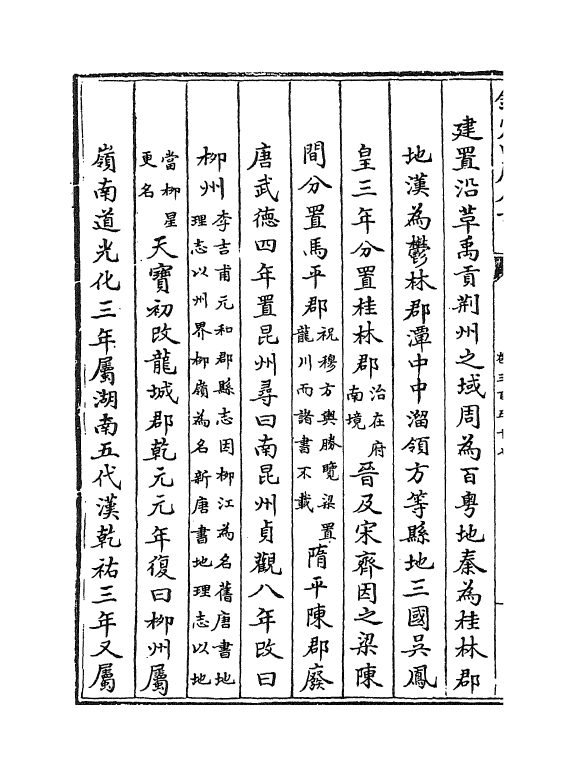 建置沿革禹貢荆州之域周為百粤地秦為桂林郡
地漢為鬱林郡潭中中溜領方等縣地三國吳鳳
皇三年分置桂林郡治在府南境晉及宋齊因之梁陳
間分置馬平郡祝穆方輿勝覽梁置龍川而諸書不載隋平陳郡廢
唐武德四年置昆州尋曰南昆州貞觀八年改曰
柳州李吉甫元和郡縣志因柳江為名舊唐書地理志以州界柳嶺為名新唐書地理志以地
當柳星更名天寶初改龍城郡乾元元年復曰柳州屬
嶺南道光化三年屬湖南五代漢乾祐三年又屬